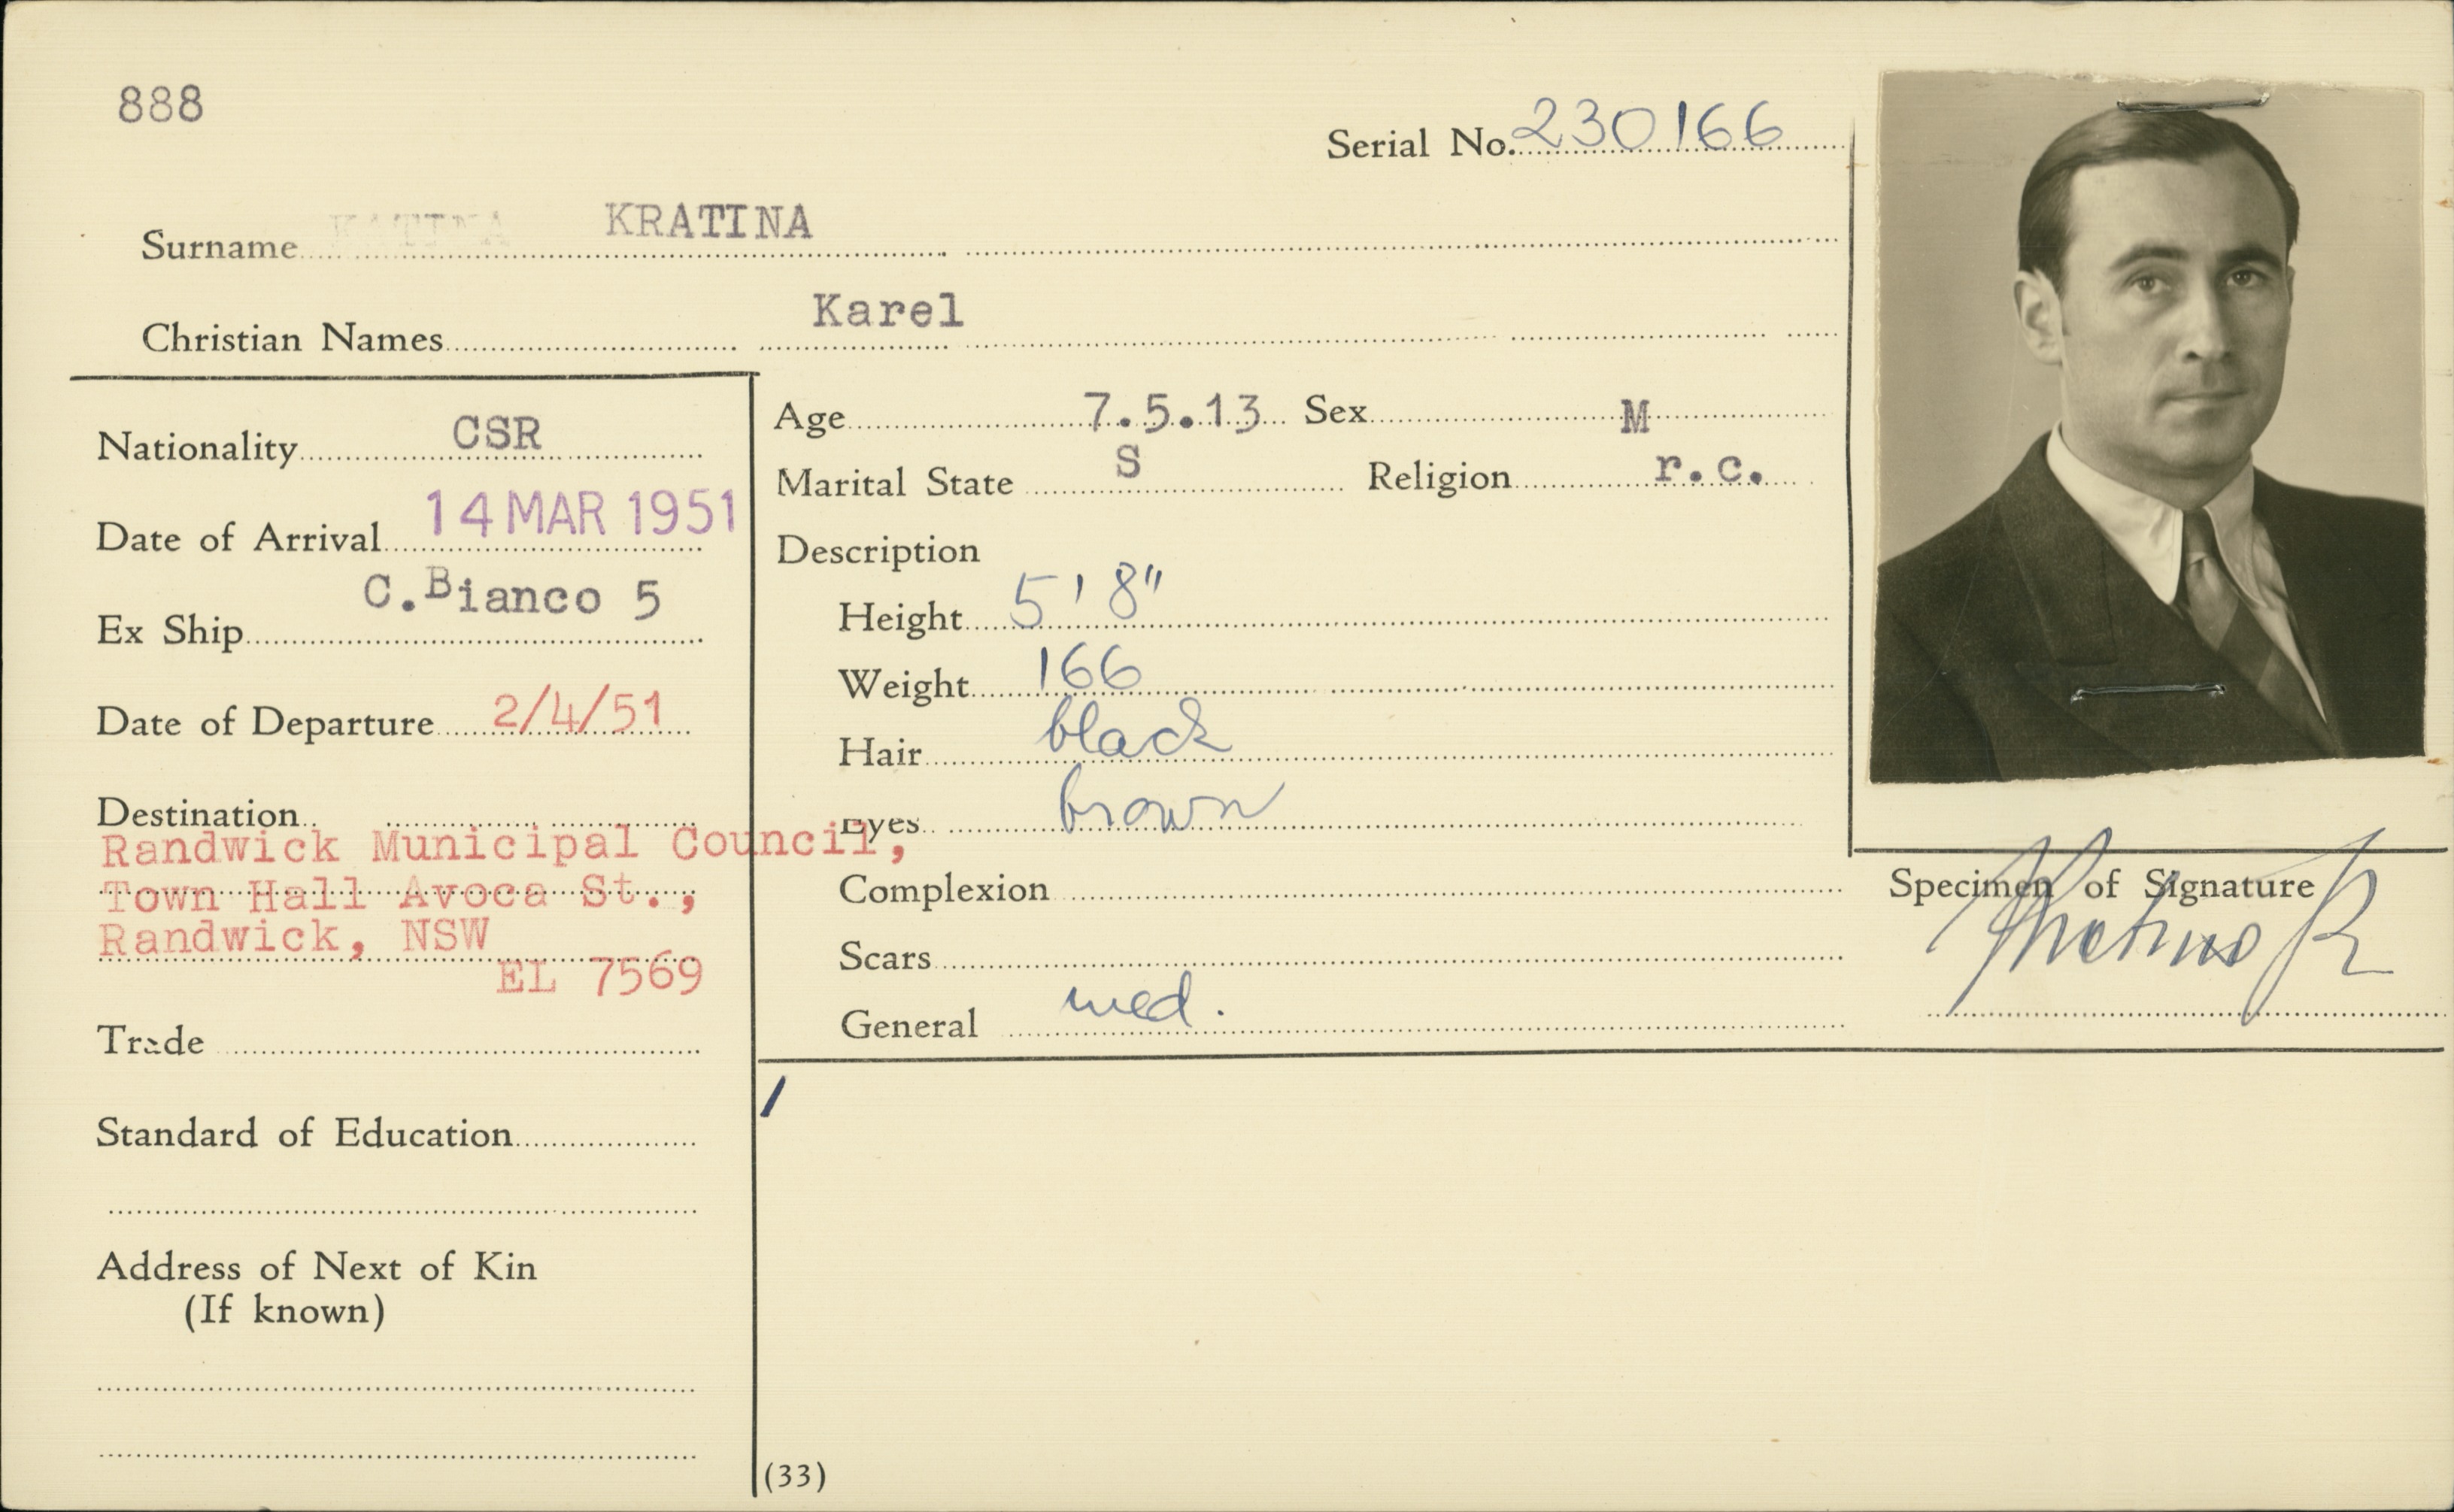 888
Serial No. 230166
Surname KATINA KRATINA
Christian Names Karel
Nationality CSR
Date of Arrival 14 MAR 1951
Ex Ship C.Bianco 5
Date of Departure 2/4/51
Destination
Randwick Municipal Council,
Town Hall Avoca St.,
Randwick, NSW
EL 7569
Trade
Standard of Education
Address of Next of Kin
(If known)
Age 7.5.13 Sex M
Marital State S Religion r.c.
Description
Height 5' 8"
Weight 166
Hair black
Eyes brown
Complexion
Scars
General med.
Specimen of Signature
Kratina K
(33)